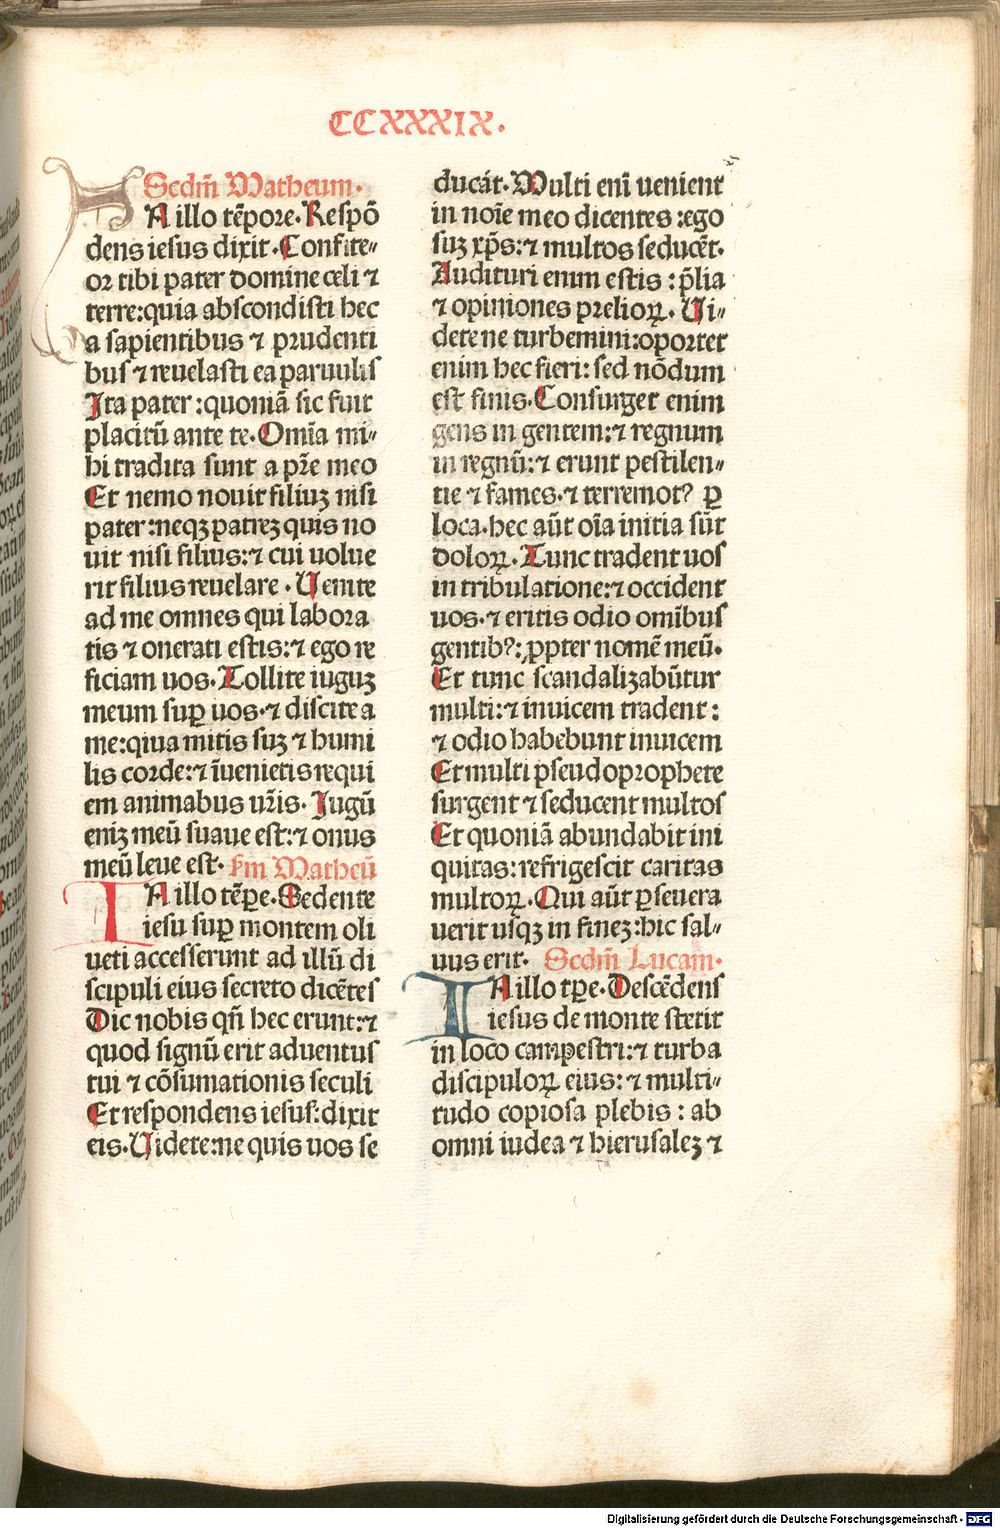 CCXXXIX.
Scdm̄ Matheum.
IN illo tēpore. Respō
dens iesus dixit. Confite⸗
or tibi pater domine celi ⁊
terre:quia abscondisti hec
a sapientibus ⁊ prudenti
bus ⁊ reuelasti ea paruulis
Ita pater:quoniā sic fuit
placitū ante te. Omīa mi⸗
hi tradita sunt a pr̄e meo
Et nemo nouit filiuꝫ nisi
pater:neqꝫ patreꝫ quis no
uit nisi filius:⁊ cui uolue
rit filius reuelare. Uenite
ad me omnes qui labora
tis ⁊ onerati estis:⁊ ego re
ficiam uos. Tollite iuguꝫ
meum suꝑ uos.⁊ discite a
me:qiua mitis suꝫ ⁊ humi
lis corde:⁊ īuenietis requi
em animabus ur̄is. Jugū
eniꝫ meū suaue est:⁊ onus
meū leue est. s̄m Matheū
IN illo tēꝑe. Sedente
iesu suꝑ montem oli
ueti accesserunt ad illū di
scipuli eius secreto dicētes
Dic nobis qn̄ hec erunt:⁊
quod signū erit aduentus
tui ⁊ cōsumationis seculi
Et respondens iesus:dixit
eis. Uidete:ne quis uos se
ducāt. Multi enī uenient
in noīe meo dicentes:ego
suꝫ xp̄s:⁊ multos seducēt.
Audituri enim estis:p̄lia
⁊ opiniones prelioꝝ. Ui⸗
dete ne turbemini:oportet
enim hec fieri:sed nōdum
est finis. Consurget enim
gens in gentem:⁊ regnum
in regnū:⁊ erunt pestilen⸗
tie ⁊ fames.⁊ terremotꝰ ꝑ
loca.hec aūt oīa initia sūt
doloꝝ. Tunc tradent uos
in tribulatione:⁊ occident
uos.⁊ eritis odio omībus
gentibꝰ:ꝓpter nomē meū.
Et tunc scandalizabūtur
multi:⁊ inuicem tradent:
⁊ odio habebunt inuicem
Et multi pseudoprophete
surgent ⁊ seducent multos
Et quoniā abundabit ini
quitas:refrigescit caritas
multoꝝ. Qui aūt ꝑseuera
uerit usqꝫ in fineꝫ:hic sal⸗
uus erit. Scdm̄ Lucam.
IN illo tꝑe. Descēdens
iesus de monte stetit
in loco campestri:⁊ turba
discipuloꝝ eius:⁊ multi⸗
tudo copiosa plebis:ab
omni iudea ⁊ hierusaleꝫ ⁊
Digitalisierung gefördert durch die Deutsche Forschungsgemeinschaft - DFG